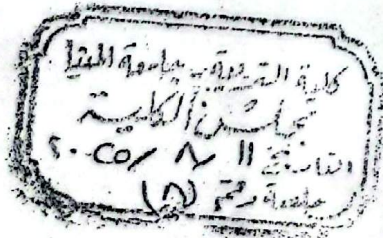 كلية التربية - جامعة المنيا
مجلس الكلية
التاريخ ١١ / ٨ / ٢٠٢٥
جلسة رقم (٨)